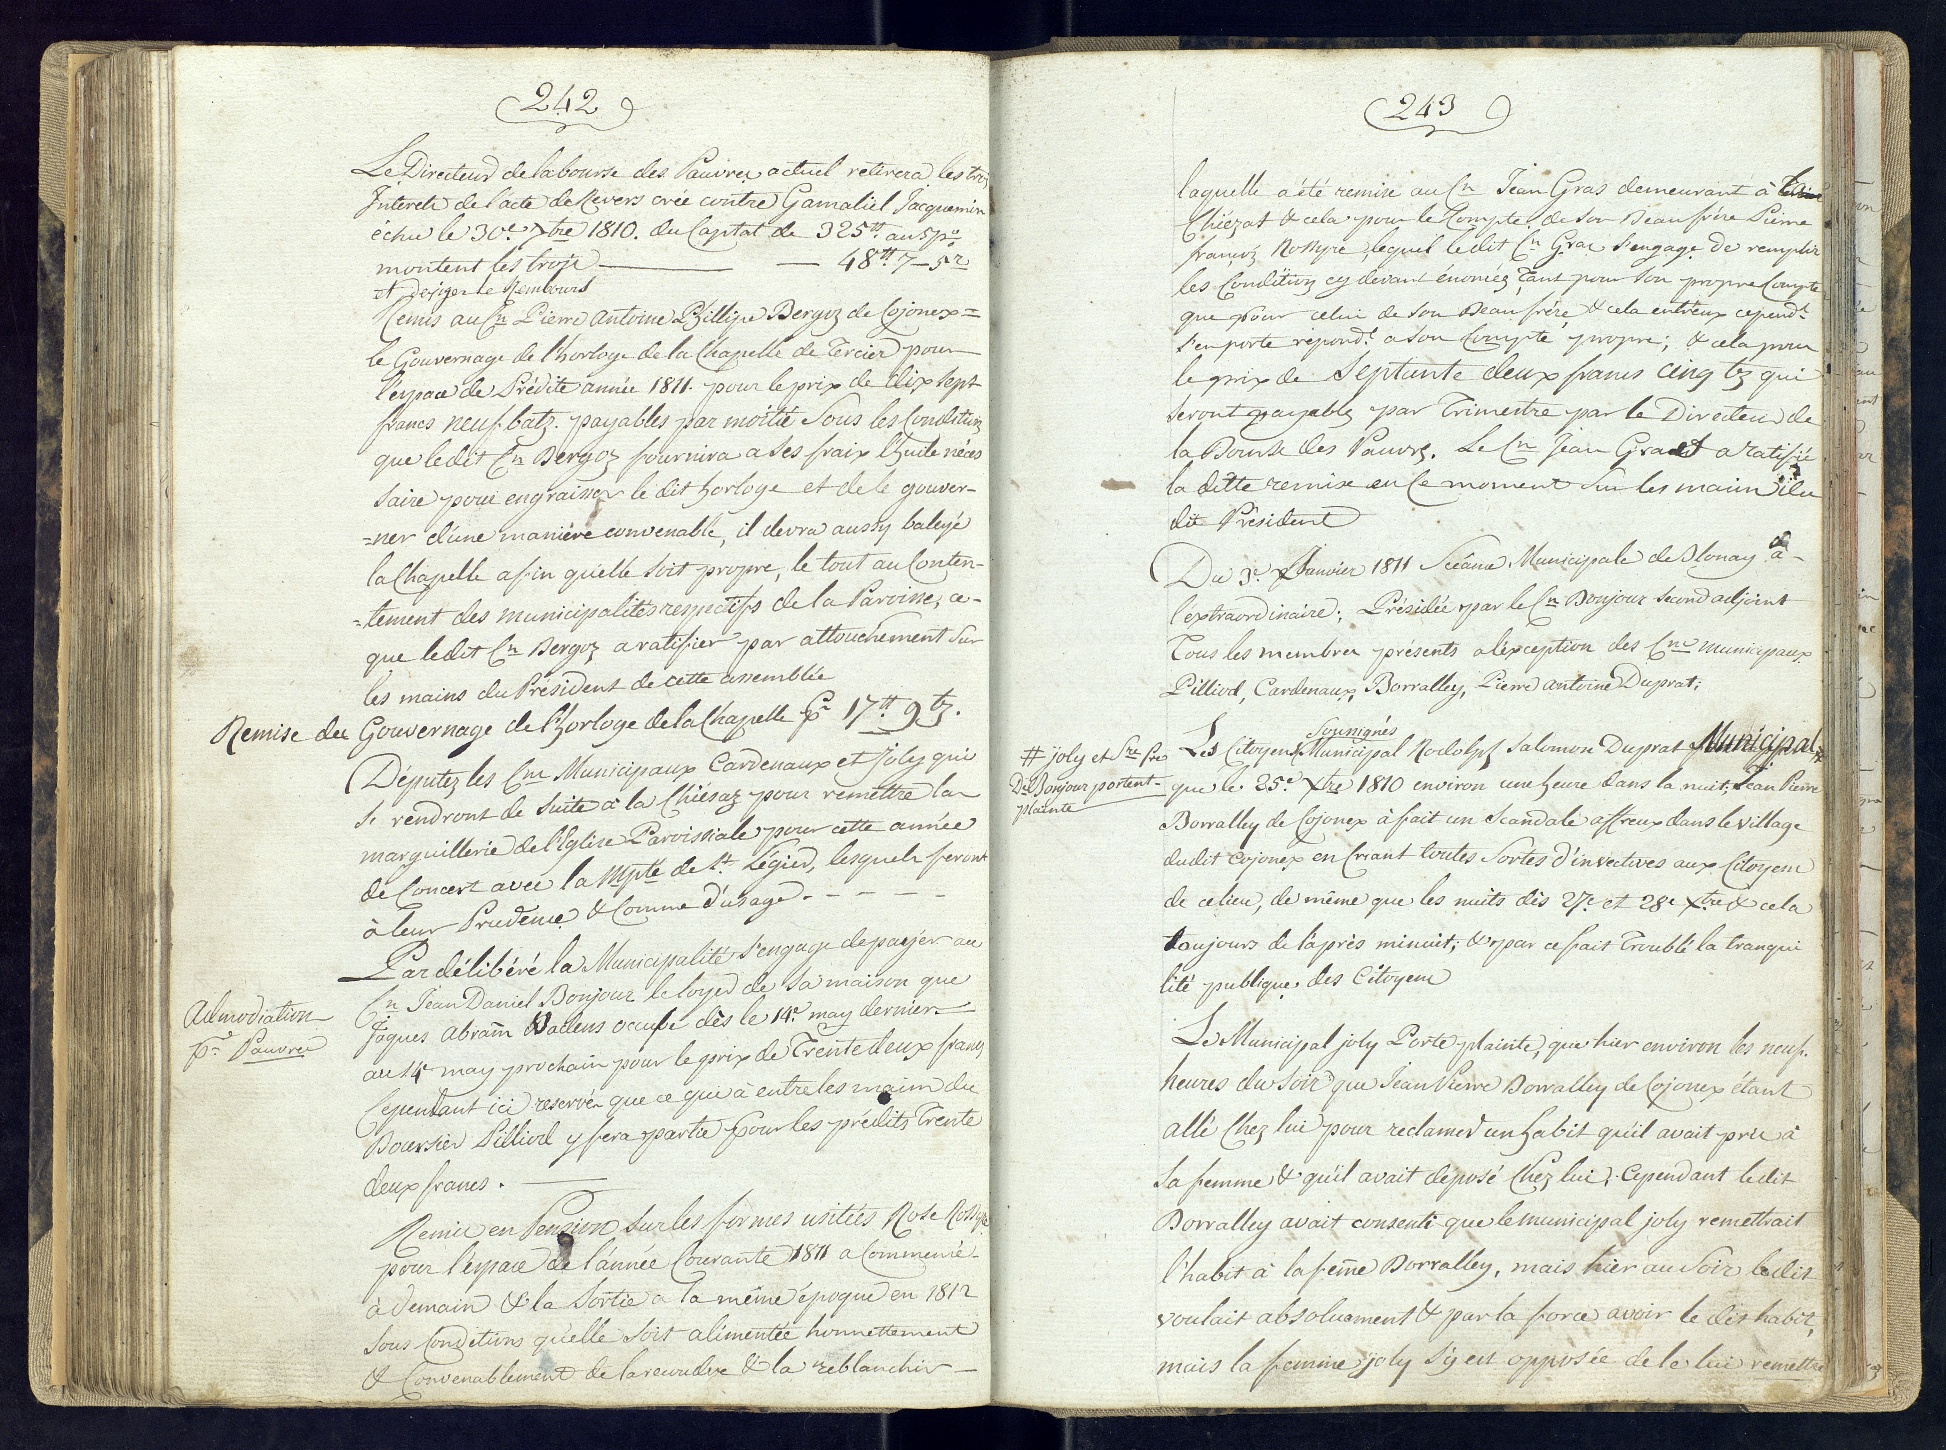 242
Le Directeur de la bourse des Pauvres actuel retirera les trois
Interets de l'acte de Revers crée contre Gamaliel Jacquemin
échu le 30e Xbre 1810. du Capital de 325 ₶ au 5 p%
montent les trois — 48 ₶ 7 – 5 r
et exiger le Rembours
Remis au Cn Pierre Antoine Phillipe Bergoz de Cojonex =
le Gouvernage de l'horloge de la Chapelle de Tercier pour
l'espace de Prédite année 1811. pour le prix de dix sept
francs neuf batz. payables par moitié sous les Conditions
que le dit Cn Bergoz fournira a ses fraix l'huile néces
saire pour engraisser le dit horloge et de le gouver-
=ner d'une maniére convenable, il devra aussy baleyé
la Chapelle afin qu'elle soit propre, le tout au Conten-
=tement des municipalités respectifs de la Paroisse, ce-
que le dit Cn Bergoz a ratifier par attouchement sur
les mains du Président de cette assemblée
Remise du Gouvernage de l'horloge de la Chapelle pr 17 ₶ 9 tz.
Députez les Cns Municipaux Cardenaux et Joly qui
se rendront de suite à la Chiésaz pour remettre la
marguillerie de l'Eglise Paroissiale pour cette année
de Concert avec la Mpté de St Légier, lesquels feront
à leur Prudence & Comme d'usage. - - - -
Par délibéré la Municipalité s'engage de payer au
Cn Jean Daniel Bonjour le loyer de sa maison que
Admodiation
pr Pauvres
Jaques Abram Vadens occupe dès le 14e may dernier
au 14e may prochain pour le prix de Trente deux francs
Cependant ici reservé que ce qui à entre les mains du
Boursier Pilliod y fera partie pour les prédits Trente
deux francs. —
Remise en Pension sur les formes usitées Rose Rossyre
pour l'espace de l'année Courante 1811 a Commencé-
à demain & la Sortie a la même époque en 1812
sous Conditions qu'elle soit alimentée honnettement
& Convenablement de la recoudre & la reblanchir —
243
laquelle a été remise au Cn Jean Gras demeurant à la
Chiézat & cela pour le Compte de son Beau frére Pierre
françoz Rossyre lequel le dit Cn Gras s'engage de remplir
les Conditions cy devant énomés, tant pour son propre Compte
que pour celui de son Beau frére & cela entreux cependt
s'en porte répondt a son Compte propre; & cela pour
le prix de Septante deux francs cinq tz qui
seront payables par Trimestre par le Directeur de
la Bourse des Pauvrs. Le Cn Jean Gras et a ratifié
la ditte remise en Ce moment sur les mains du
dit Président
Du 3e Janvier 1811 Séance Municipale de Blonay à -
l'extraordinaire; Présidée par le Cn Bonjour second adjoint
Tous les membres présents a léxception des Cns municipaux
Pilliod, Cardenaux, Borralley, Pierre Antoine Duprat;
Sousignés
Les Citoyens Municipal Rodolphe Salomon Duprat Municipal #
# joly et Sre Pre
Dl Bonjour portent-
plainte
que le 25e Xbre 1810 environ une heure dans la nuit, Jean Pierre
Borralley de Cojonex à fait un Scandale affreux dans le village
du dit Cojonex en Criant toutes Sortes d'invectives aux Citoyens
de ce lieu, de même que les nuits dès 27e et 28e Xbre & cela
toujours de l'après minuit, & par ce fait Troublé la tranqui
lité publique des Citoyens
Le Municipal joly Porte plainte, que hier environ les neuf.
heures du Soir que Jean Pierre Borralley de Cojonex étant
allé Chez lui pour reclamer un habit qu'il avait pris à
sa femme & qu'il avait déposé Chez lui; Cependant le dit
Borralley avait consenti que le municipal joly remettrait
l'habit à la feme Borralley, mais hier au Soir le dit
voulait absolument & par la force avoir le dit habit,
mais la femme joly s'y est opposée de le lui remettre